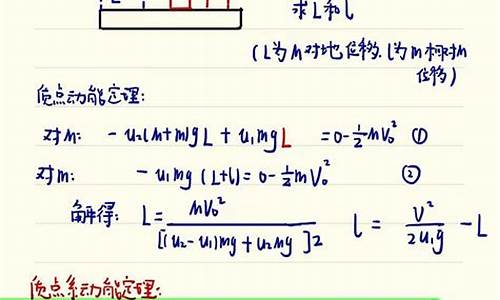 求L和l
(L为M对地位移.l为m相对M
位移)
质点动能定理:
对M: - u₂(M+m)gL + u₁mgL = 0-½MV₀² ①
对m: - u₁mg(L+l) = 0-½mV₀² ②
解得: L = MV₀² / [(u₂-u₁)mg+u₂Mg]2 l = V² / 2u₁g - L
质点系动能定理: